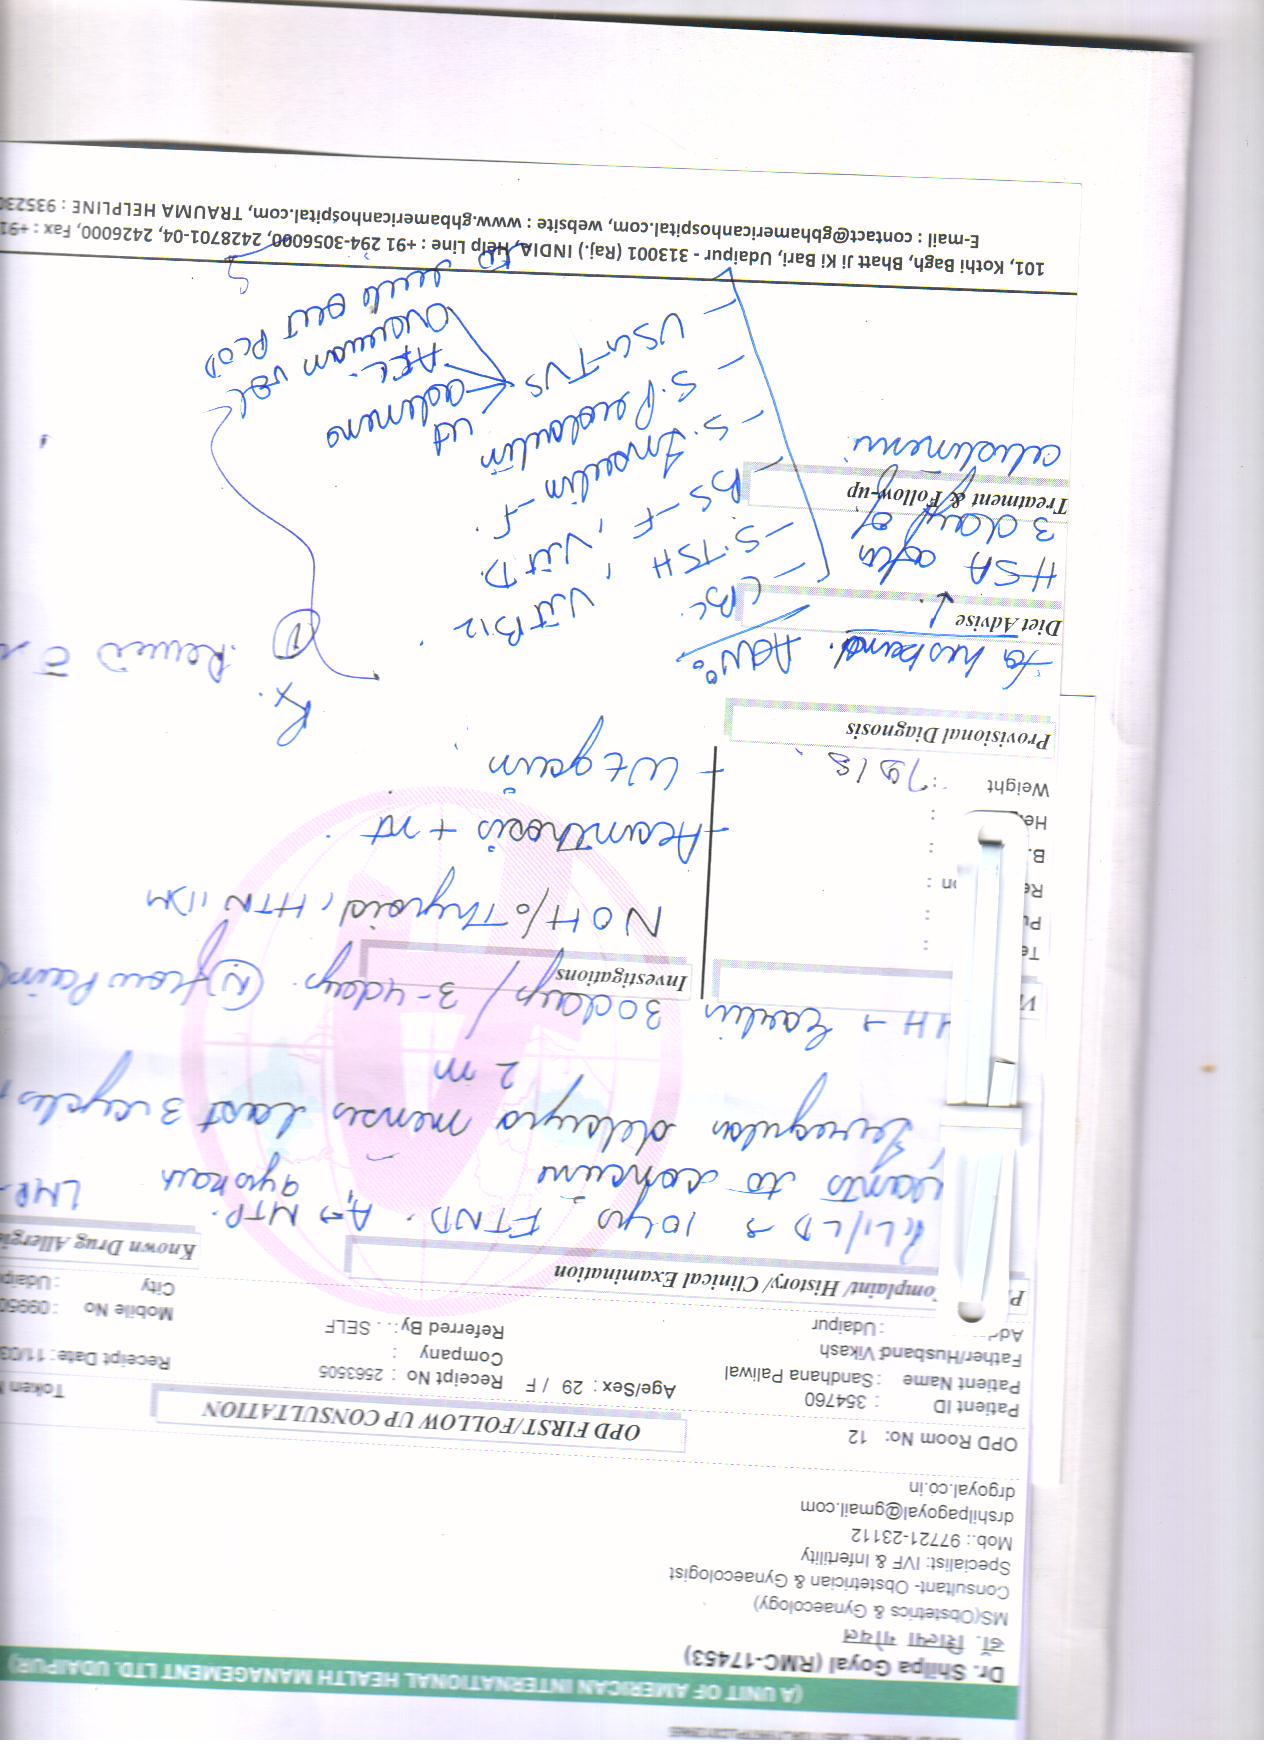 (A UNIT OF AMERICAN INTERNATIONAL HEALTH MANAGEMENT LTD. UDAIPUR)
Dr. Shilpa Goyal (RMC-17453)
डॉ. शिल्पा गोयल
MS(Obstetrics & Gynaecology)
Consultant- Obstetrician & Gynaecologist
Specialist: IVF & Infertility
Mob.: 97721-23112
drshilpagoyal@gmail.com
drgoyal.co.in
OPD Room No: 12
OPD FIRST/FOLLOW UP CONSULTATION
Token
Patient ID : 354760
Age/Sex : 29 / F Receipt No : 2563505
Receipt Date: 11/03
Patient Name : Sandhana Paliwal
Company :
Father/Husband: Vikash
Referred By: . SELF
Mobile No : 09950
: Udaipur
City : Udaip
omplaint/ History/ Clinical Examination
Known Drug Allergi
P1L1/LD → 10yrs FTND. A1 → MTP. LMP-
wants to conceive 4yrs back
Irregular delayed menses last 3 cycles
2 m
MH → Earlier 30days / 3-4days. N flow Pain
Investigations
NO H/o Thyroid, HTN, DM
- Acanthosis + nt
- Wt gain
Weight : 79.18
Provisional Diagnosis
Rx.
to husband. Adv:
Diet Advise
① Review
HSA after
3 days of
Treatment & Follow-up
abstinence
- CBC. Vit B12
- S.TSH, Vit D.
- BS-F,
- S. Insulin-F.
- S. Prolactin
- USG-TVS
ut
adenomy
AFC.
Ovarian vol
rule out PCOD
101, Kothi Bagh, Bhatt Ji Ki Bari, Udaipur - 313001 (Raj.) INDIA, Help Line : +91 294-3056000, 2428701-04, 2426000, Fax : +91
E-mail : contact@gbhamericanhospital.com, website : www.gbhamericanhospital.com, TRAUMA HELPLINE : 93523